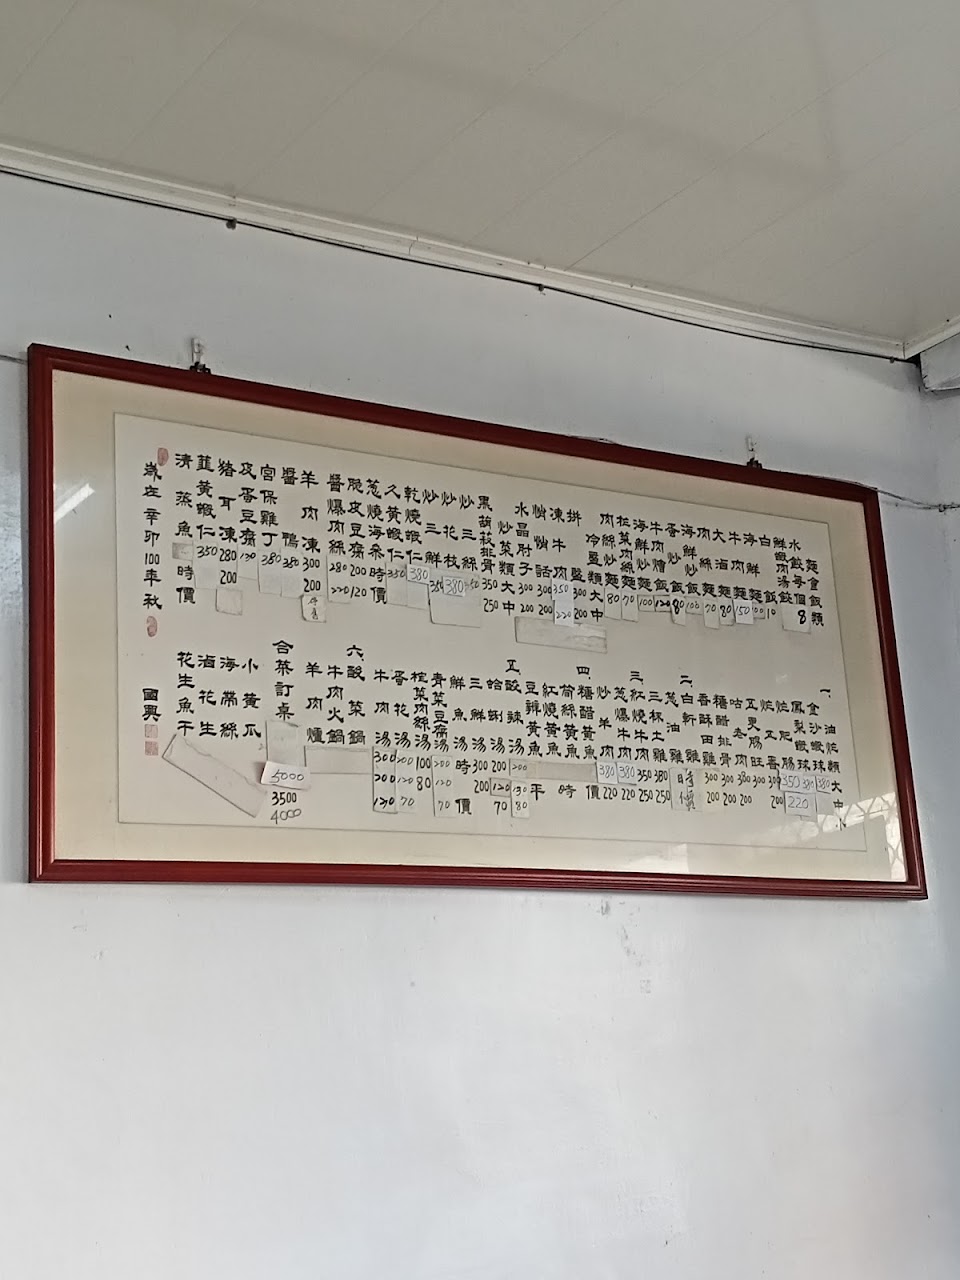 麵食飯類
水餃每個 8
鮮蝦肉湯餃
白飯 10
海鮮麵 100
牛肉麵 150
大滷麵 80
肉絲麵 70
海鮮炒飯 100
蛋炒飯 80
牛肉燴飯 120
海鮮炒麵 100
榨菜肉絲麵 70
肉絲炒麵 80
冷盤類 大 中
拼盤 300 200
凍牛肉 350 220
悄悄話 300 200
水晶肘子 300 200
炒菜類 大 中
黑胡椒排骨 350 250
炒三絲
炒花枝 380
炒三鮮
乾燒蝦仁 380
蝦仁 350
蔥燒海參 時價
脆皮豆腐 200 120
醬爆肉絲 280 220
羊肉凍 300 200
醬鴨 380
宮保雞丁 280
皮蛋豆腐
豬耳凍 280 200
韮黃蝦仁 350
清蒸魚 時價
歲在辛卯100年秋
一. 油炸類 大 中 小
金沙蝦球 380
鳳梨蝦球 380 220
炸肥腸 350
炸五香 300 200
五更腸旺 300
咕老肉 380 200
糖醋排骨 300 200
香酥田雞 300 200
二. 白斬雞 時價
蔥油雞 380 250
三杯土雞 350 250
三. 紅燒牛肉 380 220
蔥爆牛肉 380 220
炒羊肉
四. 糖醋黃魚 時價
筍絲黃魚
紅燒黃魚
豆瓣黃魚 平
五. 酸辣湯 200 130 80
蛤蜊湯 200 120 70
三鮮湯 300 200
鮮魚湯 時價
青菜豆腐湯 120 70
榨菜肉絲湯 100 80
蛋花湯 200 120 70
牛肉湯 300 200 120
六. 酸菜鍋
牛肉火鍋
羊肉爐
合菜訂桌 5000 3500 4000
小黃瓜
海帶絲
滷花生
花生魚干
國興